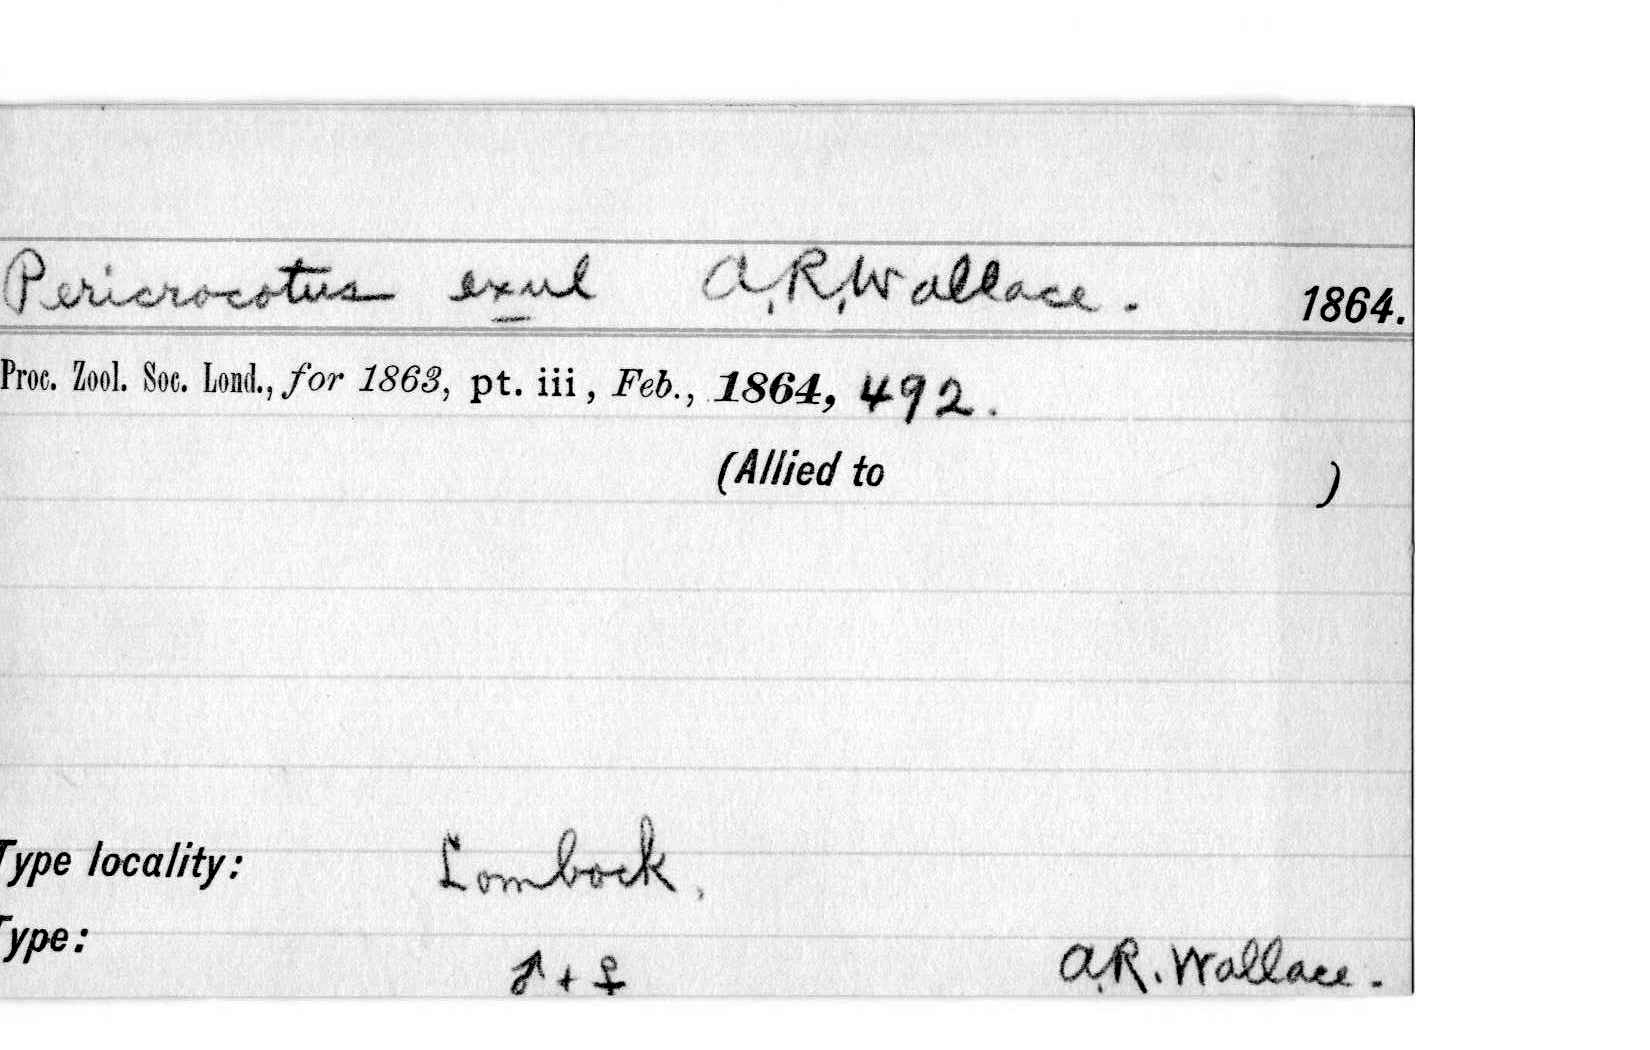 Pericrocotus exul A.R.Wallace. 1864.
Proc. Zool. Soc. Lond., for 1863, pt. iii, Feb., 1864, 492.
(Allied to )
Type locality: Lombock.
Type: ♂ + ♀ A.R. Wallace.